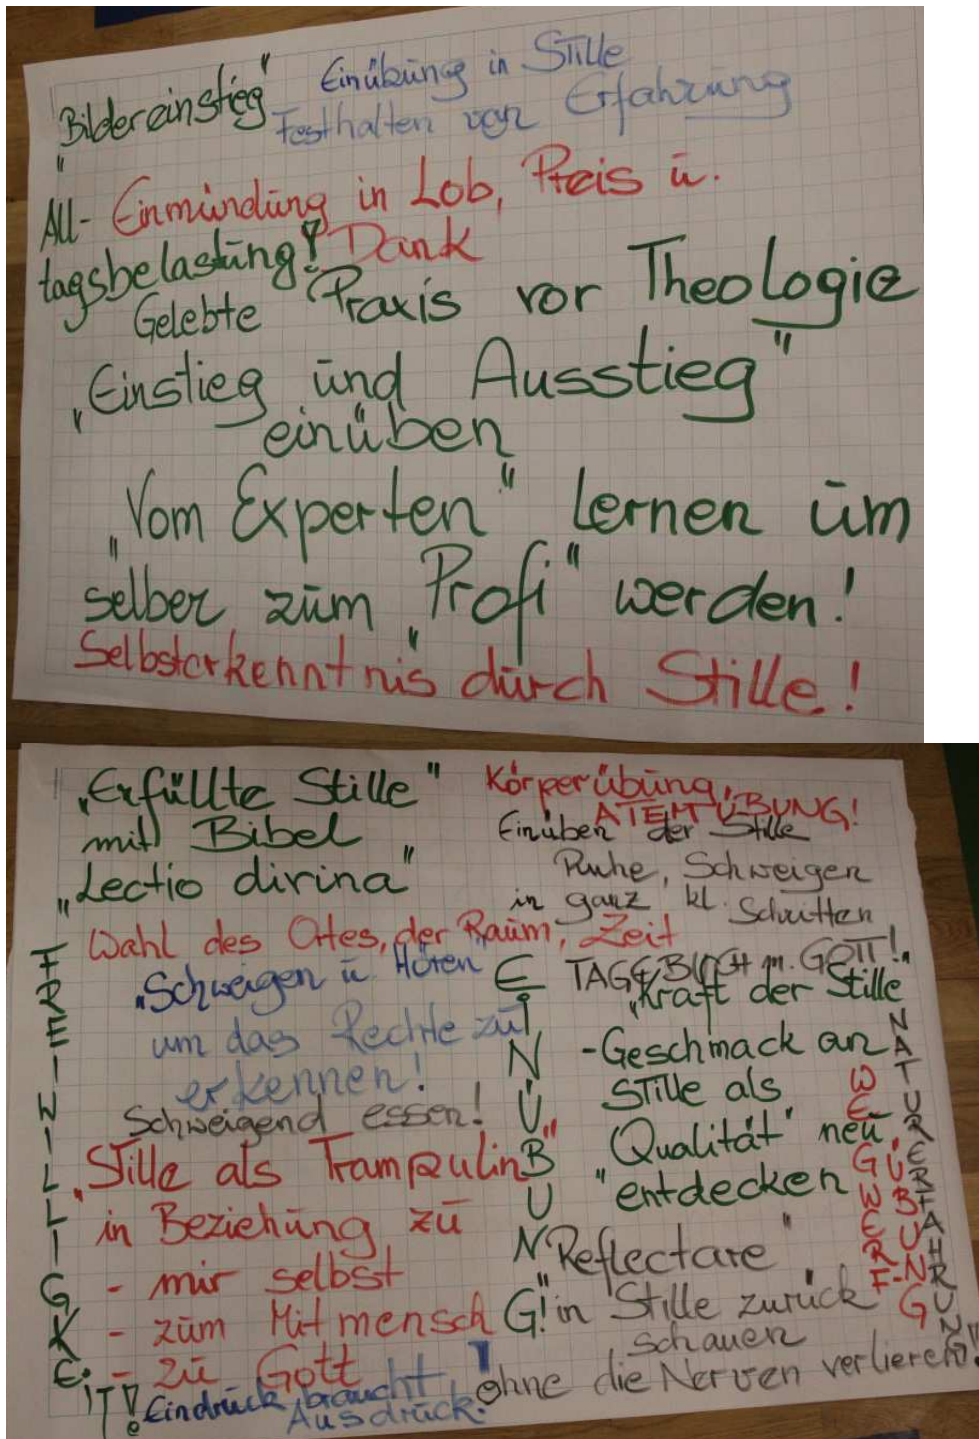 „Bildereinstieg"
Einübung in Stille
Festhalten von Erfahrung
All-
tagsbelastung!
Einmündung in Lob, Preis u.
Dank
Gelebte Praxis vor Theologie
„Einstieg und Ausstieg"
einüben
„Vom Experten" lernen um
selber zum „Profi" werden!
Selbsterkenntnis durch Stille!
„Erfüllte Stille"
mit Bibel
„Lectio divina"
Körperübung,
ATEMÜBUNG!
Einüben der Stille
Ruhe, Schweigen
in ganz kl. Schritten
Wahl des Ortes, der Raum, Zeit
TAGEBUCH m. GOTT!
„Schweigen u. Hören"
um das Rechte zu
erkennen!
Schweigend essen!
„Kraft der Stille
-Geschmack an
Stille als
"Qualität" neu
entdecken
„Stille als Trampulin"
in Beziehung zu
- mir selbst
- zum Mitmensch
- zu Gott
"Reflectare"
in Stille zurück
schauen
ohne die Nerven verlieren!
Eindruck braucht
Ausdruck!
FREIWILLIGKEIT!
EINÜBUNG!
WEGWERF-
ÜBUNG
NATURERFAHRUNG!